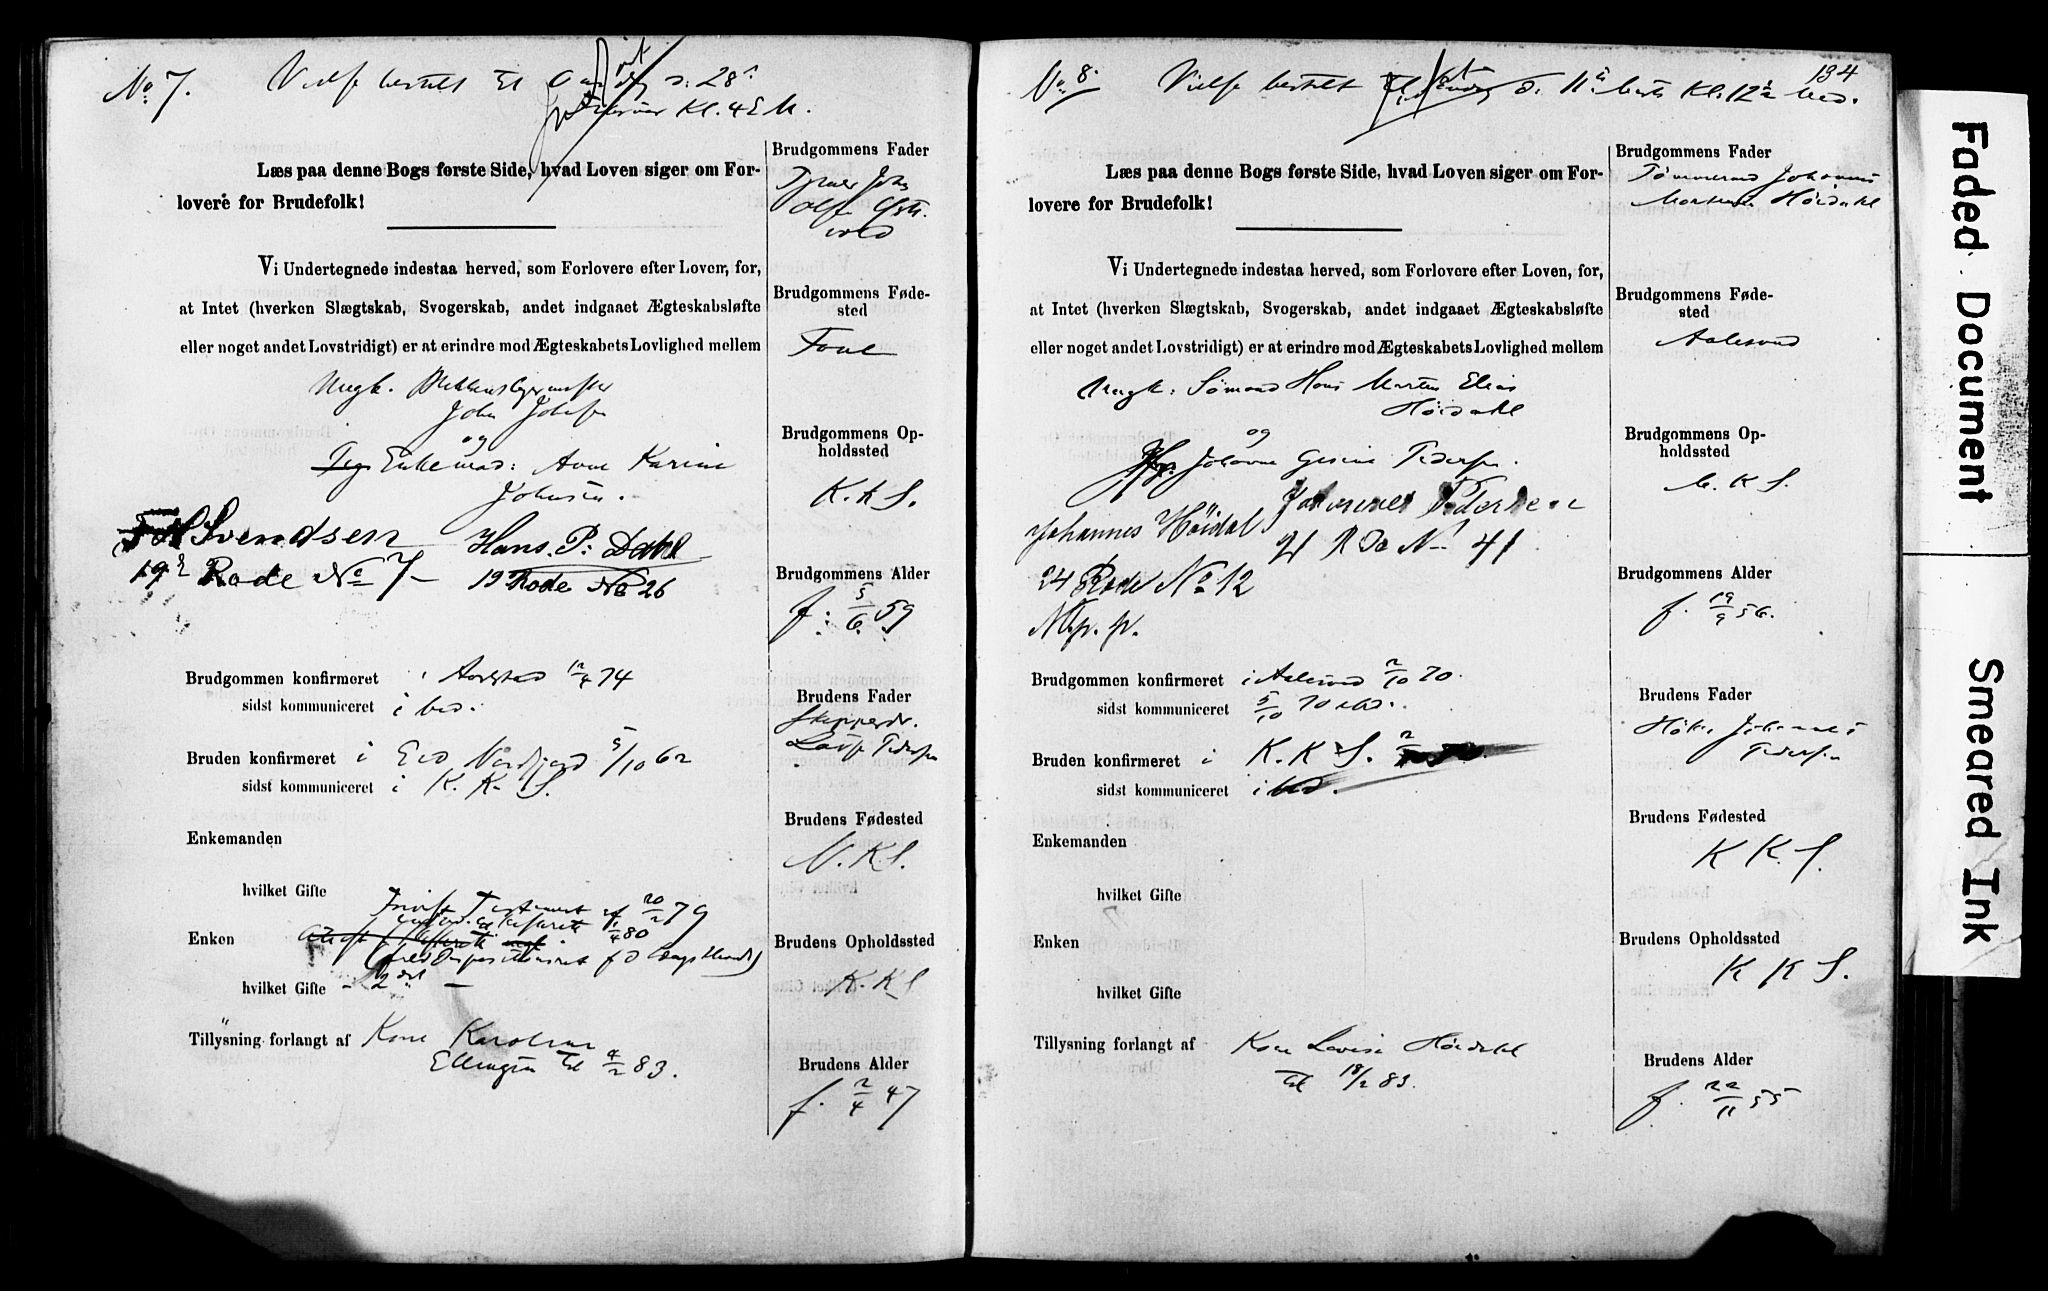 No 7. Vielse bestilt til d: 28'
Februar Kl. 4 E M.
Læs paa denne Bogs første Side, hvad Loven siger om For-
lovere for Brudefolk!
Vi Undertegnede indestaa herved, som Forlovere efter Loven, for,
at Intet (hverken Slægtskab, Svogerskab, andet indgaaet Ægteskabsløfte
eller noget andet Lovstridigt) er at erindre mod Ægteskabets Lovlighed mellem
Ungk.
John Johnsen
og
Enkemad: Anne Karine
Johnsen.
Svendsen
19 Rode No 7
Hans. P: Dahl
19 Rode No 26
Brudgommen konfirmeret i 12/4 74
sidst kommuniceret i
Bruden konfirmeret i Eid Nordfjord 5/10 62
sidst kommuniceret i K. K. S.
Enkemanden
hvilket Gifte
20/2 79
4/4 80
Enken
hvilket Gifte - 2det -
Tillysning forlangt af Kone Karoline
Ellingsen til 4/2 83.
Brudgommens Fader
John
Brudgommens Føde-
sted
Brudgommens Op-
holdssted
K. K. S.
Brudgommens Alder
f: 5/6 59
Brudens Fader
Skipperdr.
Pedersen
Brudens Fødested
N. K. S.
Brudens Opholdssted
K. K. S
Brudens Alder
f. 2/4 47
No 8. Vielse bestilt d. 11 Marts Kl. 12 1/2 Med.
134
Læs paa denne Bogs første Side, hvad Loven siger om For-
lovere for Brudefolk!
Vi Undertegnede indestaa herved, som Forlovere efter Loven, for,
at Intet (hverken Slægtskab, Svogerskab, andet indgaaet Ægteskabsløfte
eller noget andet Lovstridigt) er at erindre mod Ægteskabets Lovlighed mellem
Ungk: Sømand Hans Martin Elias
Høidahl
og
Johanne Gesine Pedersen.
Johannes Höidal
24 Rode No 12
M. p. p.
Johannes Pedersen
21 Rode No 41
Brudgommen konfirmeret i Aalesund 2/10 70.
sidst kommuniceret 5/10 70 ibd.
Bruden konfirmeret i K. K. S.
sidst kommuniceret i ibd.
Enkemanden
hvilket Gifte
Enken
hvilket Gifte
Tillysning forlangt af Kone Lovise Høidahl
til 18/2 83.
Brudgommens Fader
Tømmermd Johannes
Høidahl
Brudgommens Føde-
sted
Aalesund
Brudgommens Op-
holdssted
K. S.
Brudgommens Alder
f. 19/9 56.
Brudens Fader
Johannes
Pedersen
Brudens Fødested
K K. S.
Brudens Opholdssted
K K S.
Brudens Alder
f. 22/11 55
Faded Document
Smeared Ink